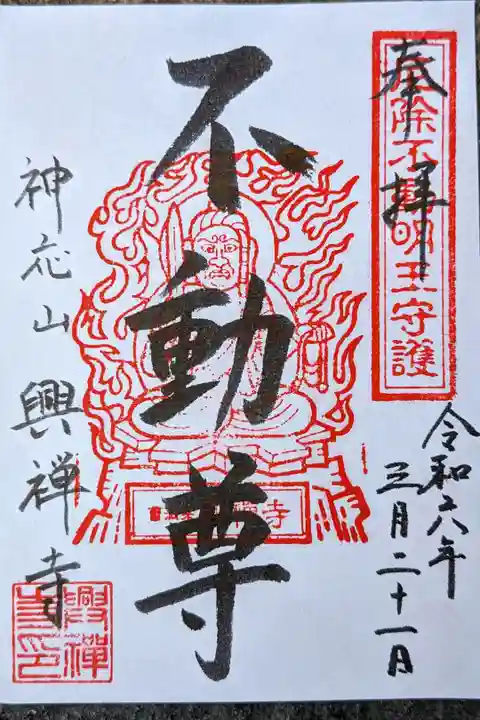 奉拝
除不動明王守護
令和六年
三月二十一日
不動尊
神応山興禅寺